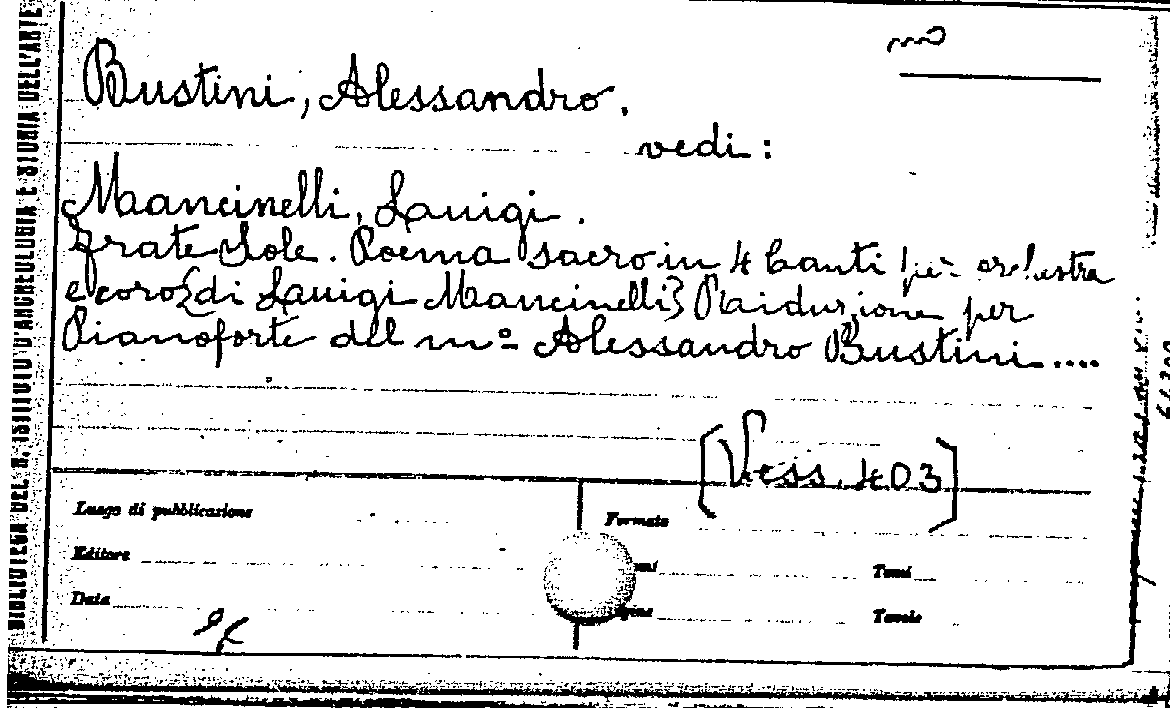 BIBLIOTECA DEL R. ISTITUTO D'ARCHEOLOGIA E STORIA DELL'ARTE
Bustini, Alessandro.
vedi :
Mancinelli, Luigi.
Frate Sole. Poema sacro in 4 Canti per orchestra
e coro {di Luigi Mancinelli} Riduzione per
Pianoforte del mº Alessandro Bustini....
[Vess. 403]
Luogo di pubblicazione
Formato
Editore
Tomi
Data
Tavole